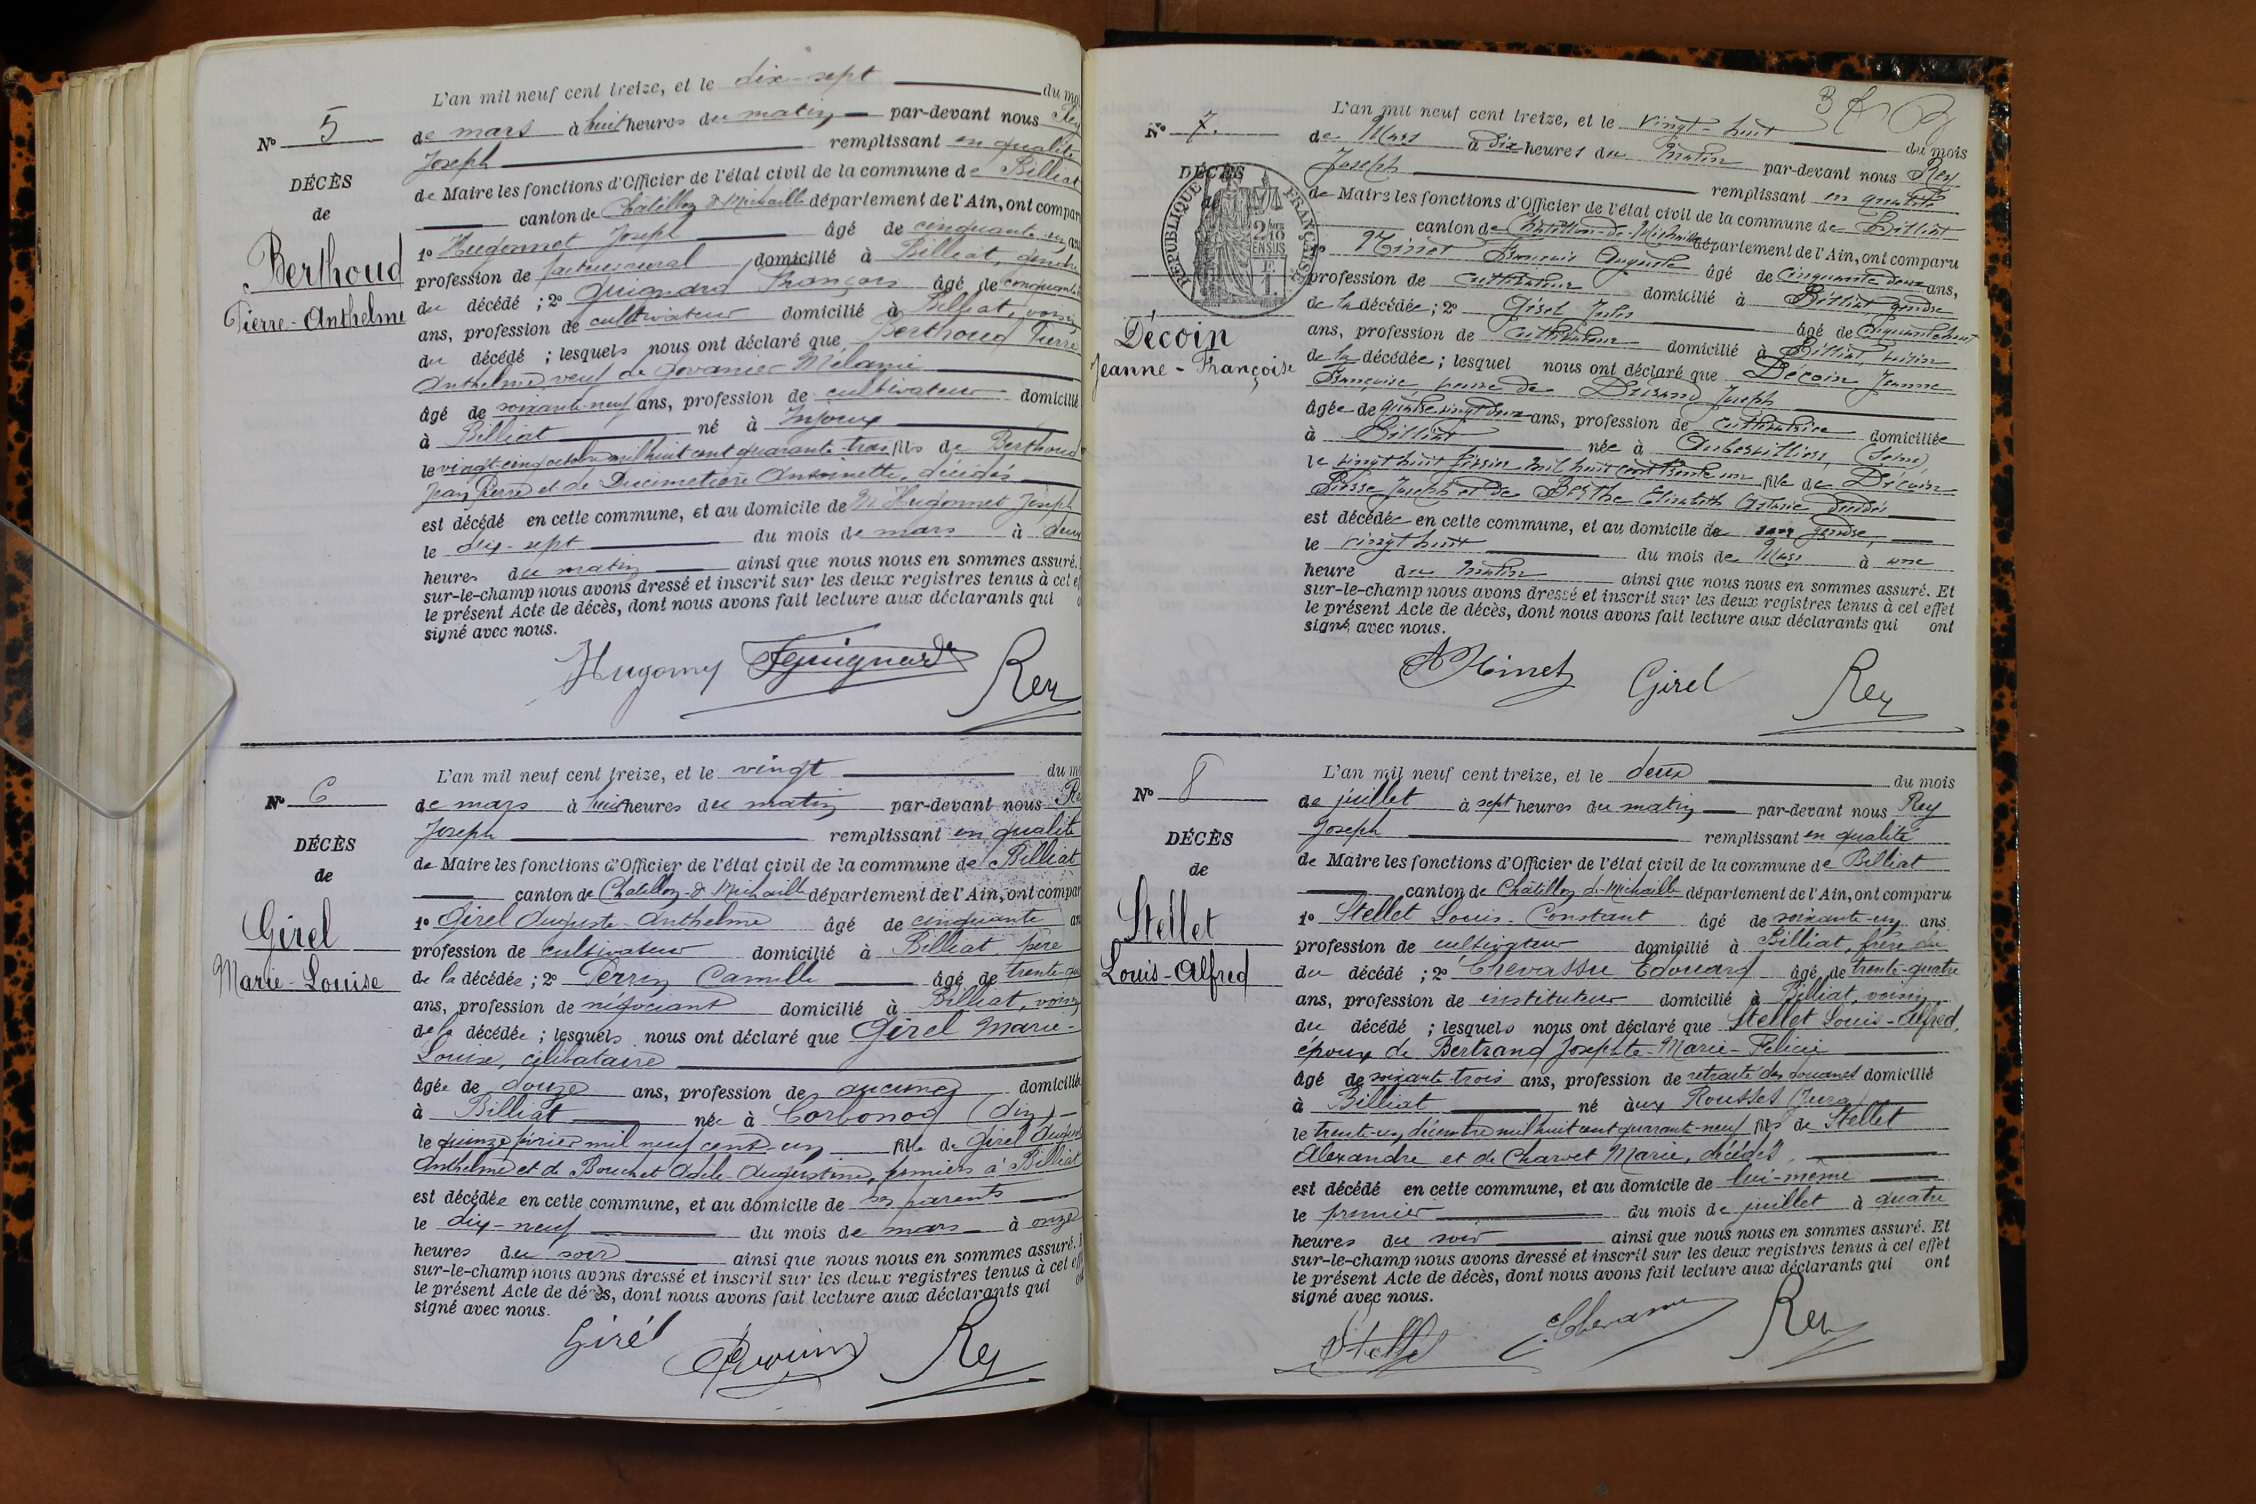 N° 5
DÉCÈS
de
Berthoud
Pierre-Anthelme
L'an mil neuf cent treize, et le dix-sept du moi
de mars à huit heures du matin par-devant nous Rey
Joseph remplissant en qualité
de Maire les fonctions d'Officier de l'état civil de la commune de Billiat
canton de Châtillon-d-Michaille département de l'Ain, ont compar
1° Hugonnet Joseph âgé de cinquante-un ans
profession de facteur rural domicilié à Billiat, gendre
du décédé ; 2° Guignard François âgé de cinquante
ans, profession de cultivateur domicilié à Billiat, voisin
du décédé ; lesquels nous ont déclaré que Berthoud Pierre
Anthelme veuf de Mélanie
âgé de soixante-neuf ans, profession de cultivateur domicilié
à Billiat né à Injoux
le vingt-cinq octobre mil huit cent quarante-trois fils de Berthoud
Jean Pierre et de Ducimetière Antoinette, décédés
est décédé en cette commune, et au domicile de M. Hugonnet Joseph
le dix-sept du mois de mars à deux
heures du matin ainsi que nous nous en sommes assuré.
sur-le-champ nous avons dressé et inscrit sur les deux registres tenus à cet ef
le présent Acte de décès, dont nous avons fait lecture aux déclarants qui
signé avec nous.
Hugonnet FGuignard Rey
N° 6
DÉCÈS
de
Girel
Marie-Louise
L'an mil neuf cent treize, et le vingt du m
de mars à huit heures du matin par-devant nous Re
Joseph remplissant en qualité
de Maire les fonctions d'Officier de l'état civil de la commune de Billiat
canton de Châtillon-d-Michaille département de l'Ain, ont compar
1° Girel Auguste-Anthelme âgé de cinquante an
profession de cultivateur domicilié à Billiat, père
de la décédée ; 2° Perrin Camille âgé de trente-
ans, profession de négociant domicilié à Billiat, voisin
de la décédée ; lesquels nous ont déclaré que Girel Marie-
Louise, célibataire
âgée de douze ans, profession de aucune domiciliée
à Billiat née à Corbonod (Ain)
le quinze février mil neuf cent-un fille de Girel Auguste
Anthelme et de Bouchet Adèle-Augustine, fermiers à Billiat
est décédée en cette commune, et au domicile de ses parents
le dix-neuf du mois de mars à onze
heures du soir ainsi que nous nous en sommes assuré.
sur-le-champ nous avons dressé et inscrit sur les deux registres tenus à cet eff
le présent Acte de décès, dont nous avons fait lecture aux déclarants qui
signé avec nous.
Girel Rey
N° 7.
DÉCÈS
RÉPUBLIQUE FRANÇAISE
Décoin
Jeanne-Françoise
L'an mil neuf cent treize, et le vingt-huit du mois
de Mars à dix heures du matin par-devant nous Rey
Joseph remplissant en qualité
de Maire les fonctions d'Officier de l'état civil de la commune de Billiat
canton de Châtillon-de-Michaille département de l'Ain, ont comparu
1° François Auguste âgé de cinquante deux ans,
profession de cultivateur domicilié à Billiat gendre
de la décédée ; 2° Girel Jules âgé de cinquante huit
ans, profession de cultivateur domicilié à Billiat, voisin
de la décédée ; lesquel nous ont déclaré que Décoin Jeanne
Françoise, veuve de Durand Joseph
âgée de quatre vingt deux ans, profession de cultivatrice domiciliée
à Billiat née à Aubervilliers, (Seine)
le vingt huit février mil huit cent trente un fille de Décoin
Pierre Joseph et de Berthe Elisabeth décédés
est décédée en cette commune, et au domicile de son gendre,
le vingt huit du mois de Mars à une
heure du matin ainsi que nous nous en sommes assuré. Et
sur-le-champ nous avons dressé et inscrit sur les deux registres tenus à cet effet
le présent Acte de décès, dont nous avons fait lecture aux déclarants qui ont
signé avec nous.
Girel Rey
N° 8
DÉCÈS
de
Stellet
Louis-Alfred
L'an mil neuf cent treize, et le deux du mois
de juillet à sept heures du matin par-devant nous Rey
Joseph remplissant en qualité
de Maire les fonctions d'Officier de l'état civil de la commune de Billiat
canton de Châtillon-d-Michaille département de l'Ain, ont comparu
1° Stellet Louis-Constant âgé de soixante-un ans
profession de cultivateur domicilié à Billiat, frère du
du décédé ; 2° Chevassu Edouard âgé de trente-quatre
ans, profession de instituteur domicilié à Billiat, voisin
du décédé ; lesquels nous ont déclaré que Stellet Louis-Alfred,
époux de Bertrand Josephte-Marie-Félicie
âgé de soixante-trois ans, profession de retraité des douanes domicilié
à Billiat né aux Rousses (Jura)
le trente-un décembre mil huit cent quarante-neuf fils de Stellet
Alexandre et de Charvet Marie, décédés.
est décédé en cette commune, et au domicile de lui-même
le premier du mois de juillet à quatre
heures du soir ainsi que nous nous en sommes assuré. Et
sur-le-champ nous avons dressé et inscrit sur les deux registres tenus à cet effet
le présent Acte de décès, dont nous avons fait lecture aux déclarants qui ont
signé avec nous.
Stellet Chevassu Rey